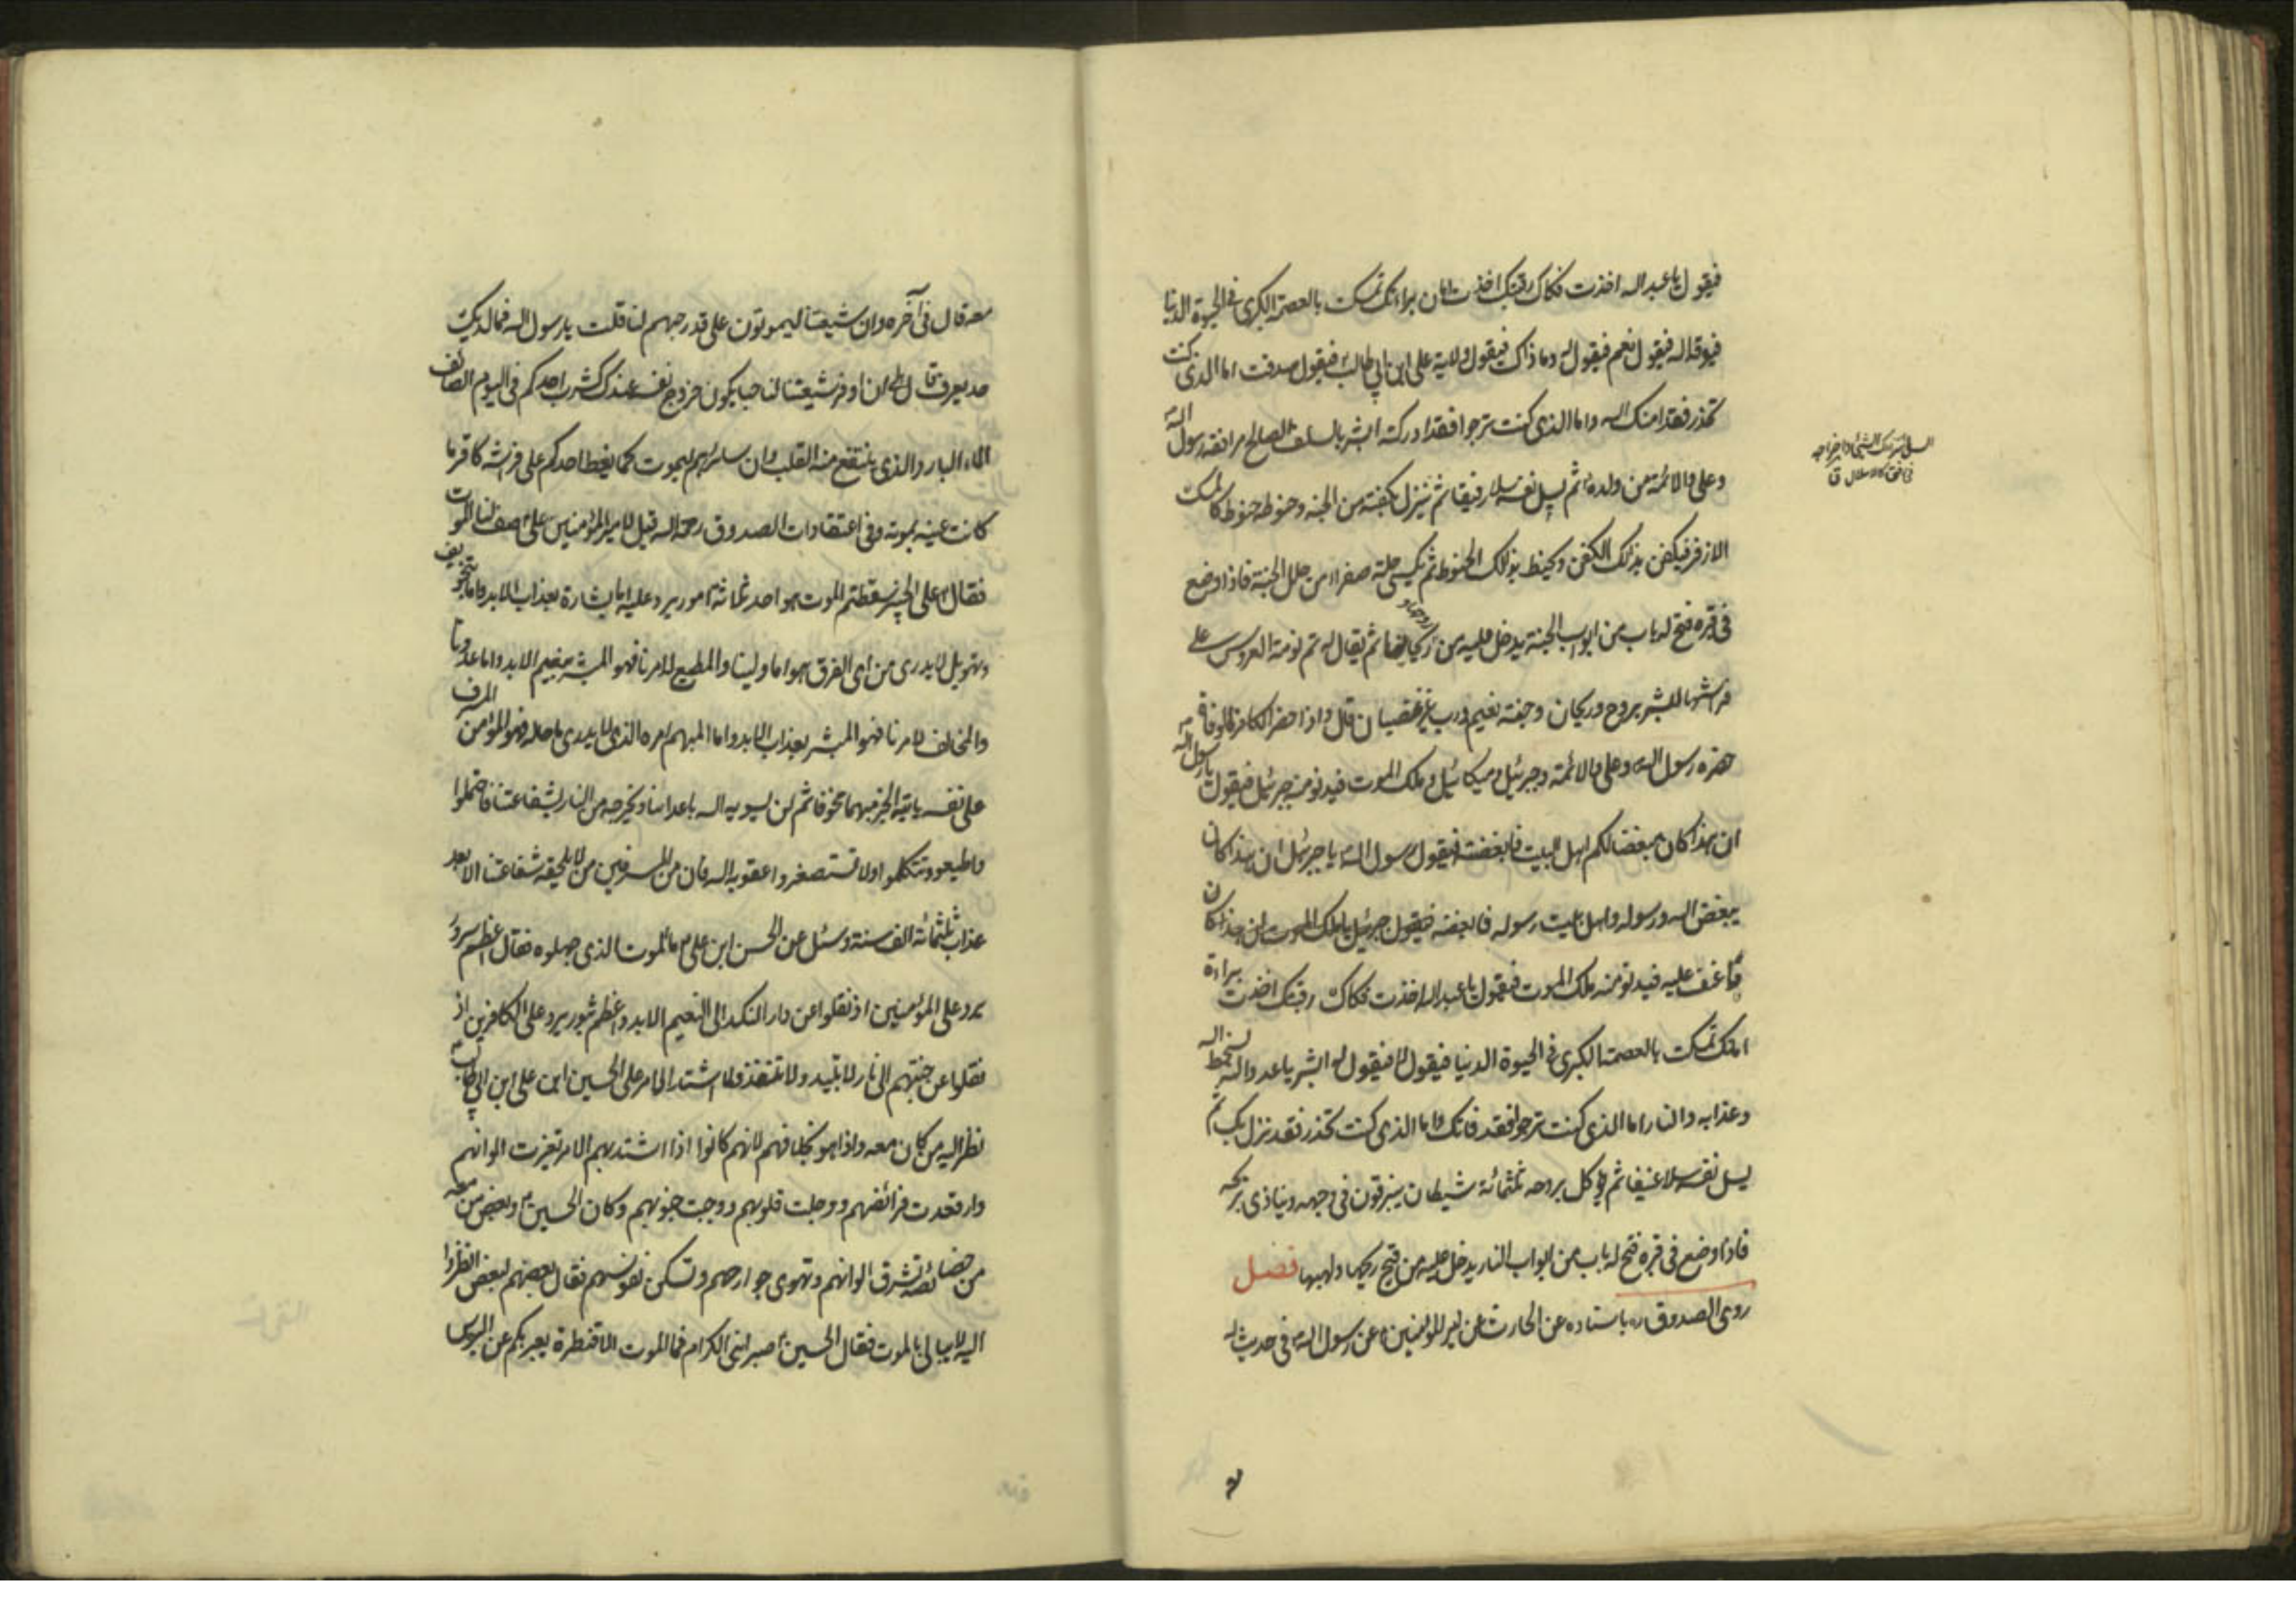 فيقول يا عبد الله اخذت فكاك رقبتك اخذت امان براءتك تمسكت بالعصمة الكبرى في الحيوة الدنيا
فيوفقه الله فيقول نعم فيقول له وما ذاك فيقول ولاية علي ابن ابي طالب فيقول صدقت اما الذي كنت
تحذر فقد امنك الله واما الذي كنت ترجوا فقد ادركته ابشر بالسلف الصالح مرافقة رسول الله
وعلي والائمة من ولده ثم يسل نفسه سلا رفيقا ثم ينزل بكفنه من الجنه وحنوطه حنوط كالمسك
الاذفر فيكفن بذلك الكفن ويحنط بذلك الحنوط ثم يكسى حلة صفراء من حلل الجنة فاذا وضع
في قبره فتح له باب من ابواب الجنة يدخل عليه من روحها وريحانها ثم يقال له نم نومة العروس على
فراشها ابشر بروح وريحان وجنة نعيم ورب غير غضبان قال واذا حضر الكافر الوفاة
حضره رسول الله وعلي والائمة وجبرئيل وميكائيل وملك الموت فيدنو منه جبرئيل فيقول يا رسول الله
ان هذا كان مبغضا لكم اهل البيت فابغضه فيقول رسول الله يا جبرئيل ان هذا كان
يبغض الله ورسوله واهل بيت رسوله فابغضه فيقول جبرئيل يا ملك الموت ان هذا كان
فاعنف عليه فيدنو منه ملك الموت فيقول يا عبد الله اخذت فكاك رقبتك اخذت براءة
امانك تمسكت بالعصمة الكبرى في الحيوة الدنيا فيقول لا فيقول له ابشر يا عدو الله بسخط الله
وعذابه والنار اما الذي كنت ترجوا فقد فاتك واما الذي كنت تحذر فقد نزل بك ثم
يسل نفسه سلا عنيفا ثم يوكل بروحه ثلثمائة شيطان يبزقون في وجهه ويتاذى بريحه
فاذا وضع في قبره فتح له باب من ابواب النار يدخل عليه من فيح ريحها ولهبها فصل
روى الصدوق ره باسناده عن الحارث عن امير المؤمنين عن رسول الله في حديث له
السل انتزاعك الشئ واخراجه
في رفق كالاستلال ق
معه قال في آخره وان شيعتنا ليموتون على قدر حبهم لنا قلت يا رسول الله فما لذلك
حد يعرف قال بلى ان اوفر شيعتنا لنا حبا يكون خروج نفسه عندك كشرب احدكم في اليوم الصائف
الماء البارد الذي ينتقع منه القلب وان سائرهم ليموت كما يغط احدكم على فراشه كاقر ما
كانت عينه بموته وفي اعتقادات الصدوق رحمه الله قيل لامير المؤمنين علي صف لنا الموت
فقال على الخبير سقطتم الموت هو احد ثلاثة امور يرد عليه اما بشارة بعذاب الابد واما بتخويف
وتهويل لا يدرى من اى الفرق هو اما ولينا والمطيع لامرنا فهو المبشر بنعيم الابد واما عدونا
والمخالف لامرنا فهو المبشر بعذاب الابد واما المبهم امره الذي لا يدرى ما حاله فهو المؤمن المسرف
على نفسه ياتيه الخبر مبهما مخوفا ثم لن يسويه الله باعدائنا ويخرجه من النار بشفاعتنا فاحتملوا
واطيعوا وتتكلوا ولا تستصغروا عقوبة الله فان من المسرفين من لا يلحقه شفاعتنا الا بعد
عذاب ثلثمائة الف سنة وسئل عن الحسن ابن علي ما الموت الذي جهلوه فقال اعظم سرور
يرد على المؤمنين اذ نقلوا عن دار النكد الى النعيم الابد واعظم ثبور يرد على الكافرين اذ
نقلوا عن جنتهم الى نار لا تبيد ولا تنفذ ولما اشتد الامر على الحسين ابن علي ابن ابي طالب
نظر اليه من كان معه واذا هو بخلافهم لانهم كانوا اذا اشتد بهم الامر تغيرت الوانهم
وارتعدت فرائصهم ووجلت قلوبهم ووجبت جنوبهم وكان الحسين وبعض من معه
من خصائصه تشرق الوانهم وتهدى جوارحهم وتسكن نفوسهم فقال بعضهم لبعض انظروا
اليه لا يبالي بالموت فقال الحسين صبرا بنى الكرام فما الموت الا قنطرة يعبر بكم عن البوس